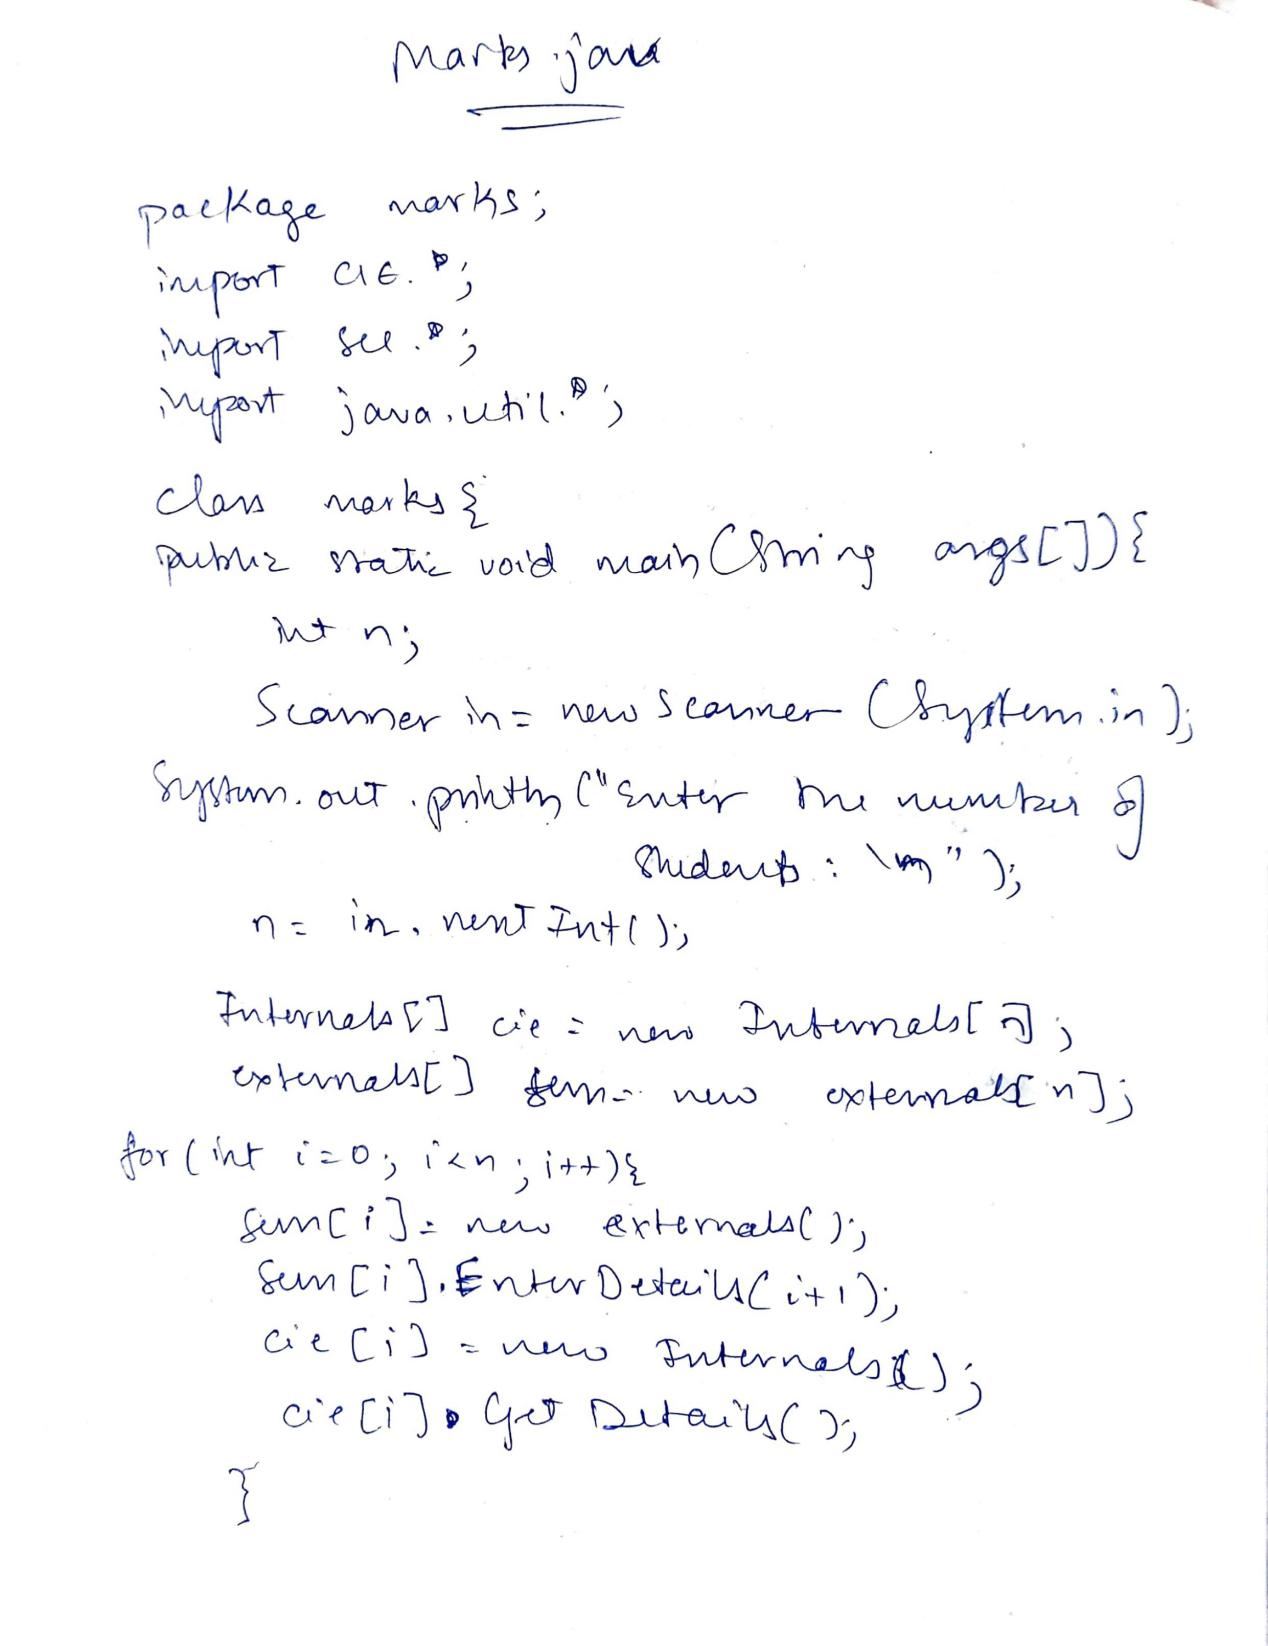 Marks.java
package marks;
import CIE.*;
import see.*;
import java.util.*;
class marks{
public static void main(String args[]){
int n;
Scanner in = new Scanner (System.in);
System.out.println("Enter the number of
Students : \n");
n = in.nextInt();
Internals[] cie = new Internals[n];
externals[] sem = new externals[n];
for(int i=0; i<n; i++){
sem[i] = new externals();
sem[i].EnterDetails(i+1);
cie[i] = new Internals();
cie[i].GetDetails();
}